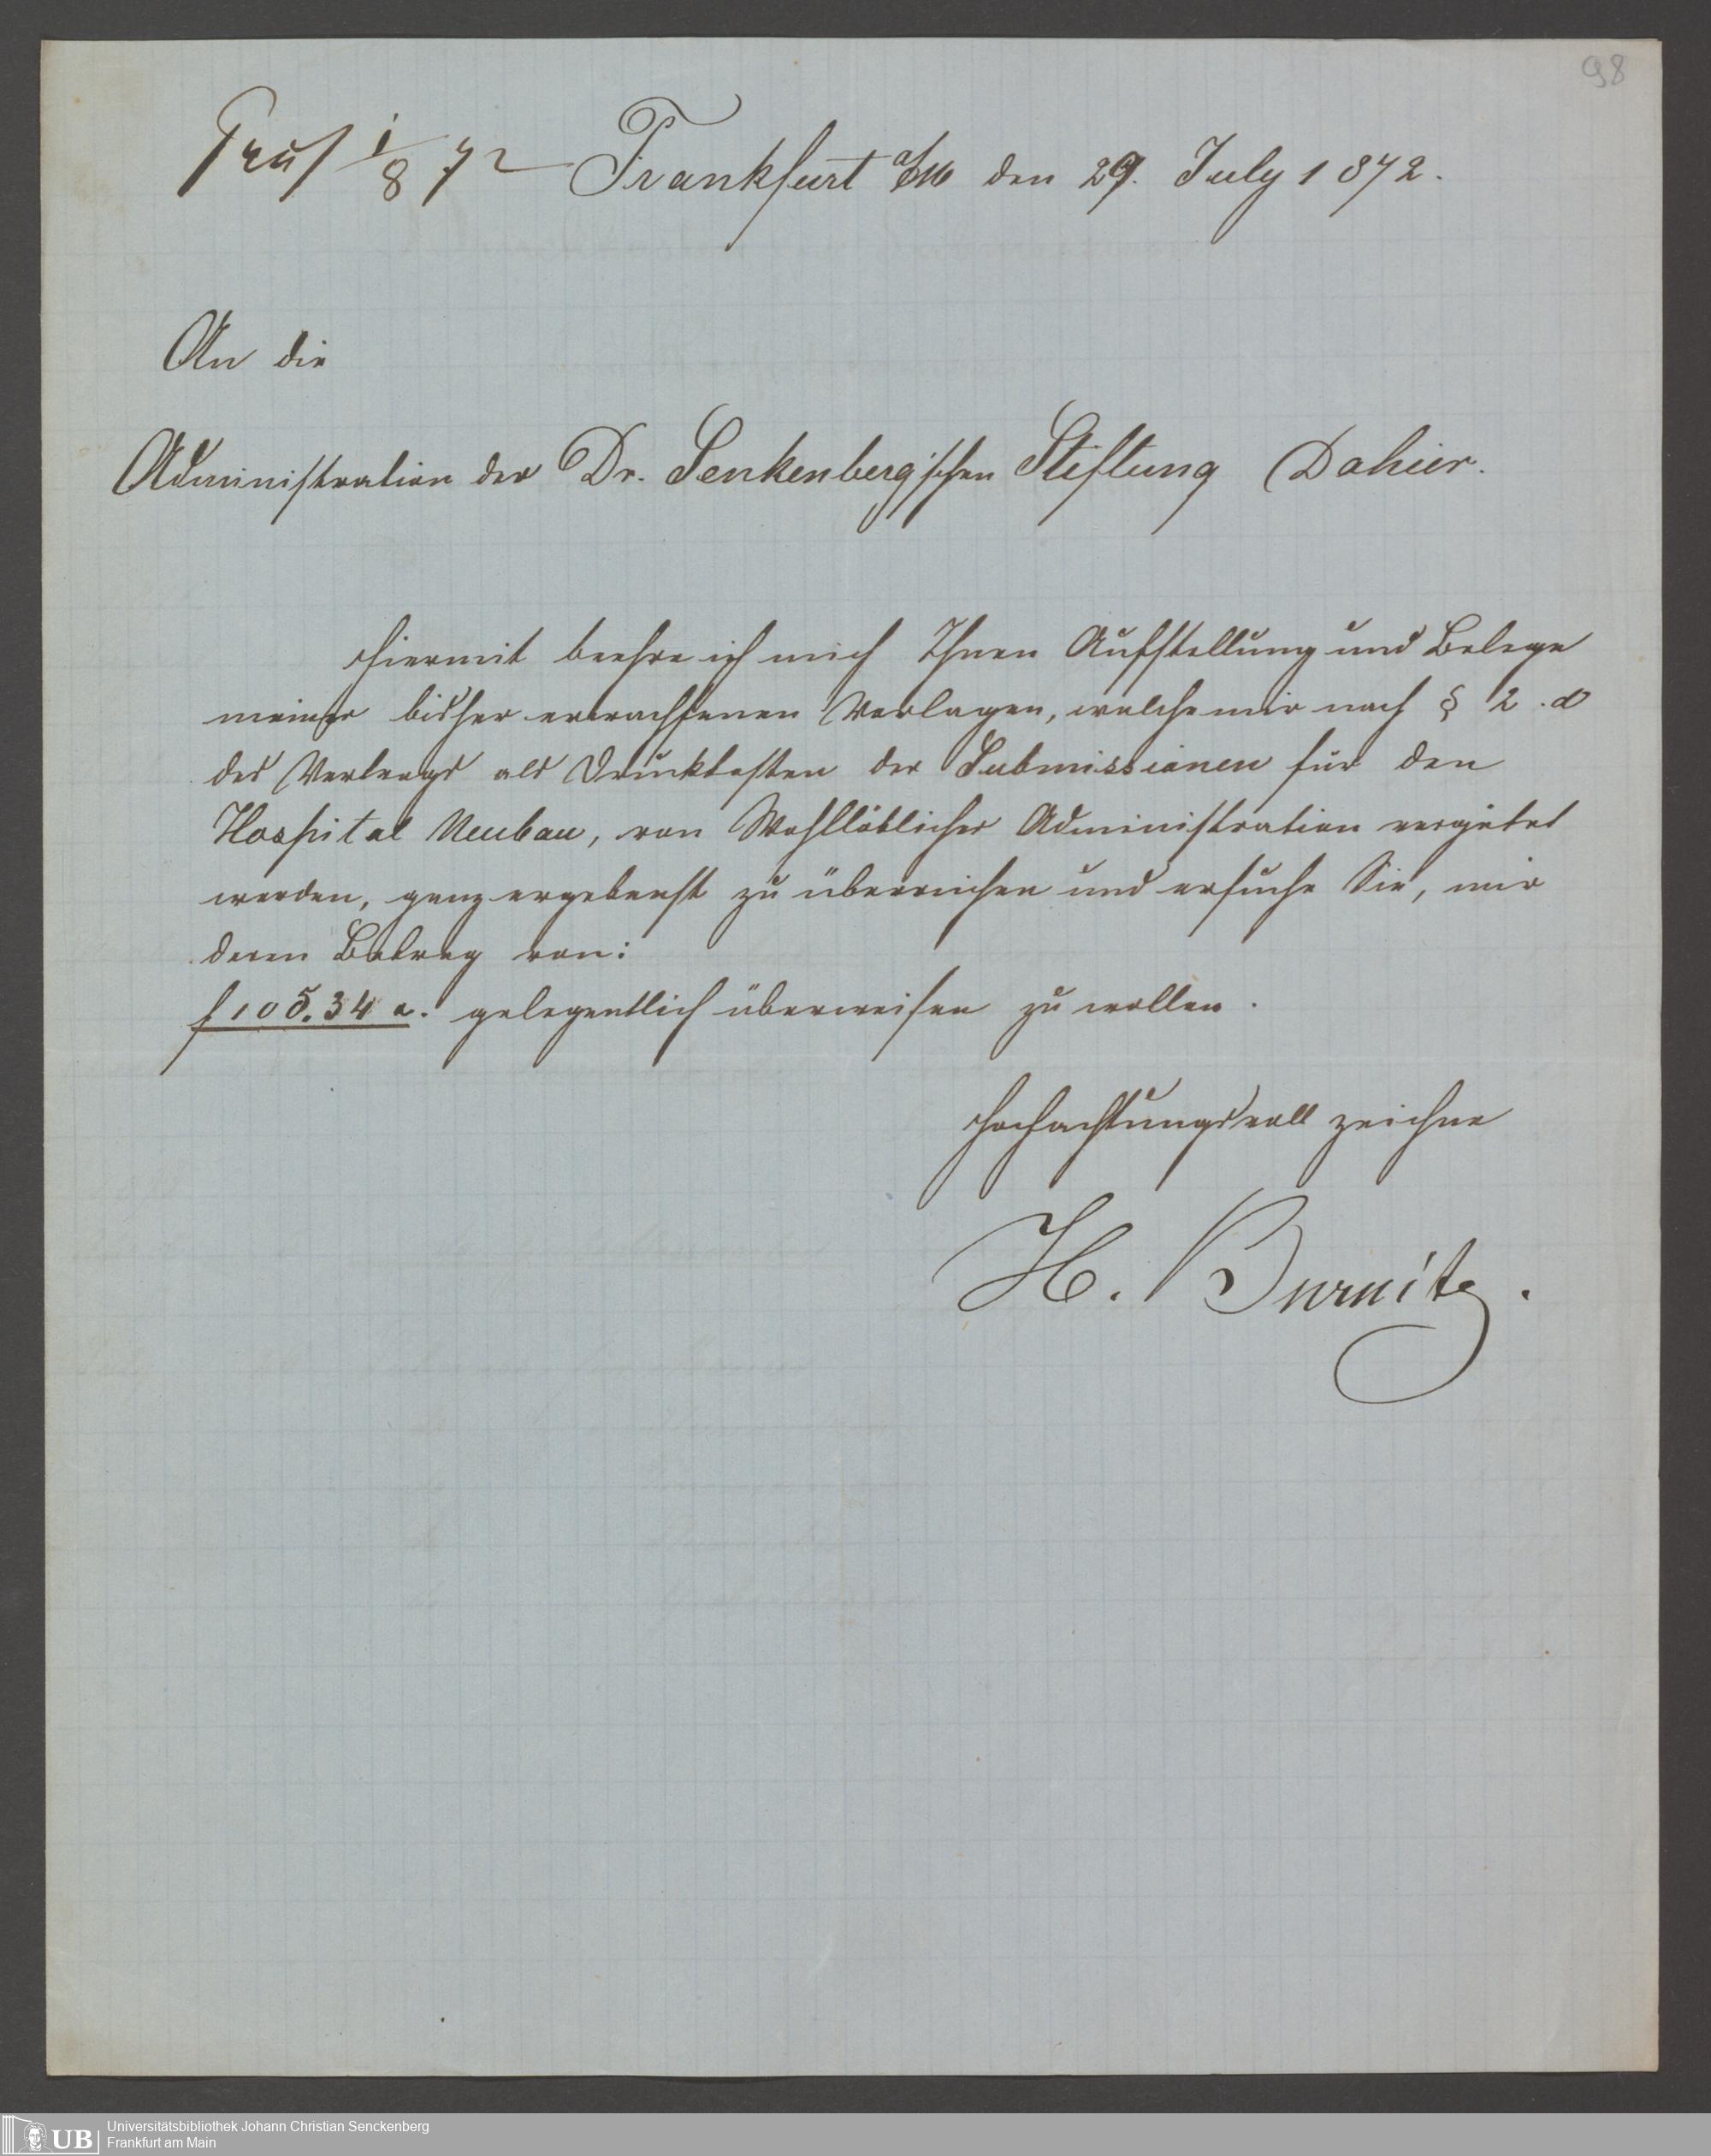 98
Präs 1/8 72
Frankfurt a/M den 29. July 1872.
An die
Administration der Dr. Senkenberg'schen Stiftung Dahier.
Hiermit beehre ich mich Ihnen Aufstellung und Belege
meiner bisher erwachsenen Verlagen, welche mir nach § 2. d
des Vertrags als Druckkosten der Submissionen für den
Hospital Neubau, von Wohllöblicher Administration vergütet
werden, ganz ergebenst zu überreichen und ersuche Sie, mir
deren Betrag von:
f 105.34 x. gelegentlich überweisen zu wollen.
Hochachtungsvoll zeichne
H. Burnitz.
UB Universitätsbibliothek Johann Christian Senckenberg
Frankfurt am Main